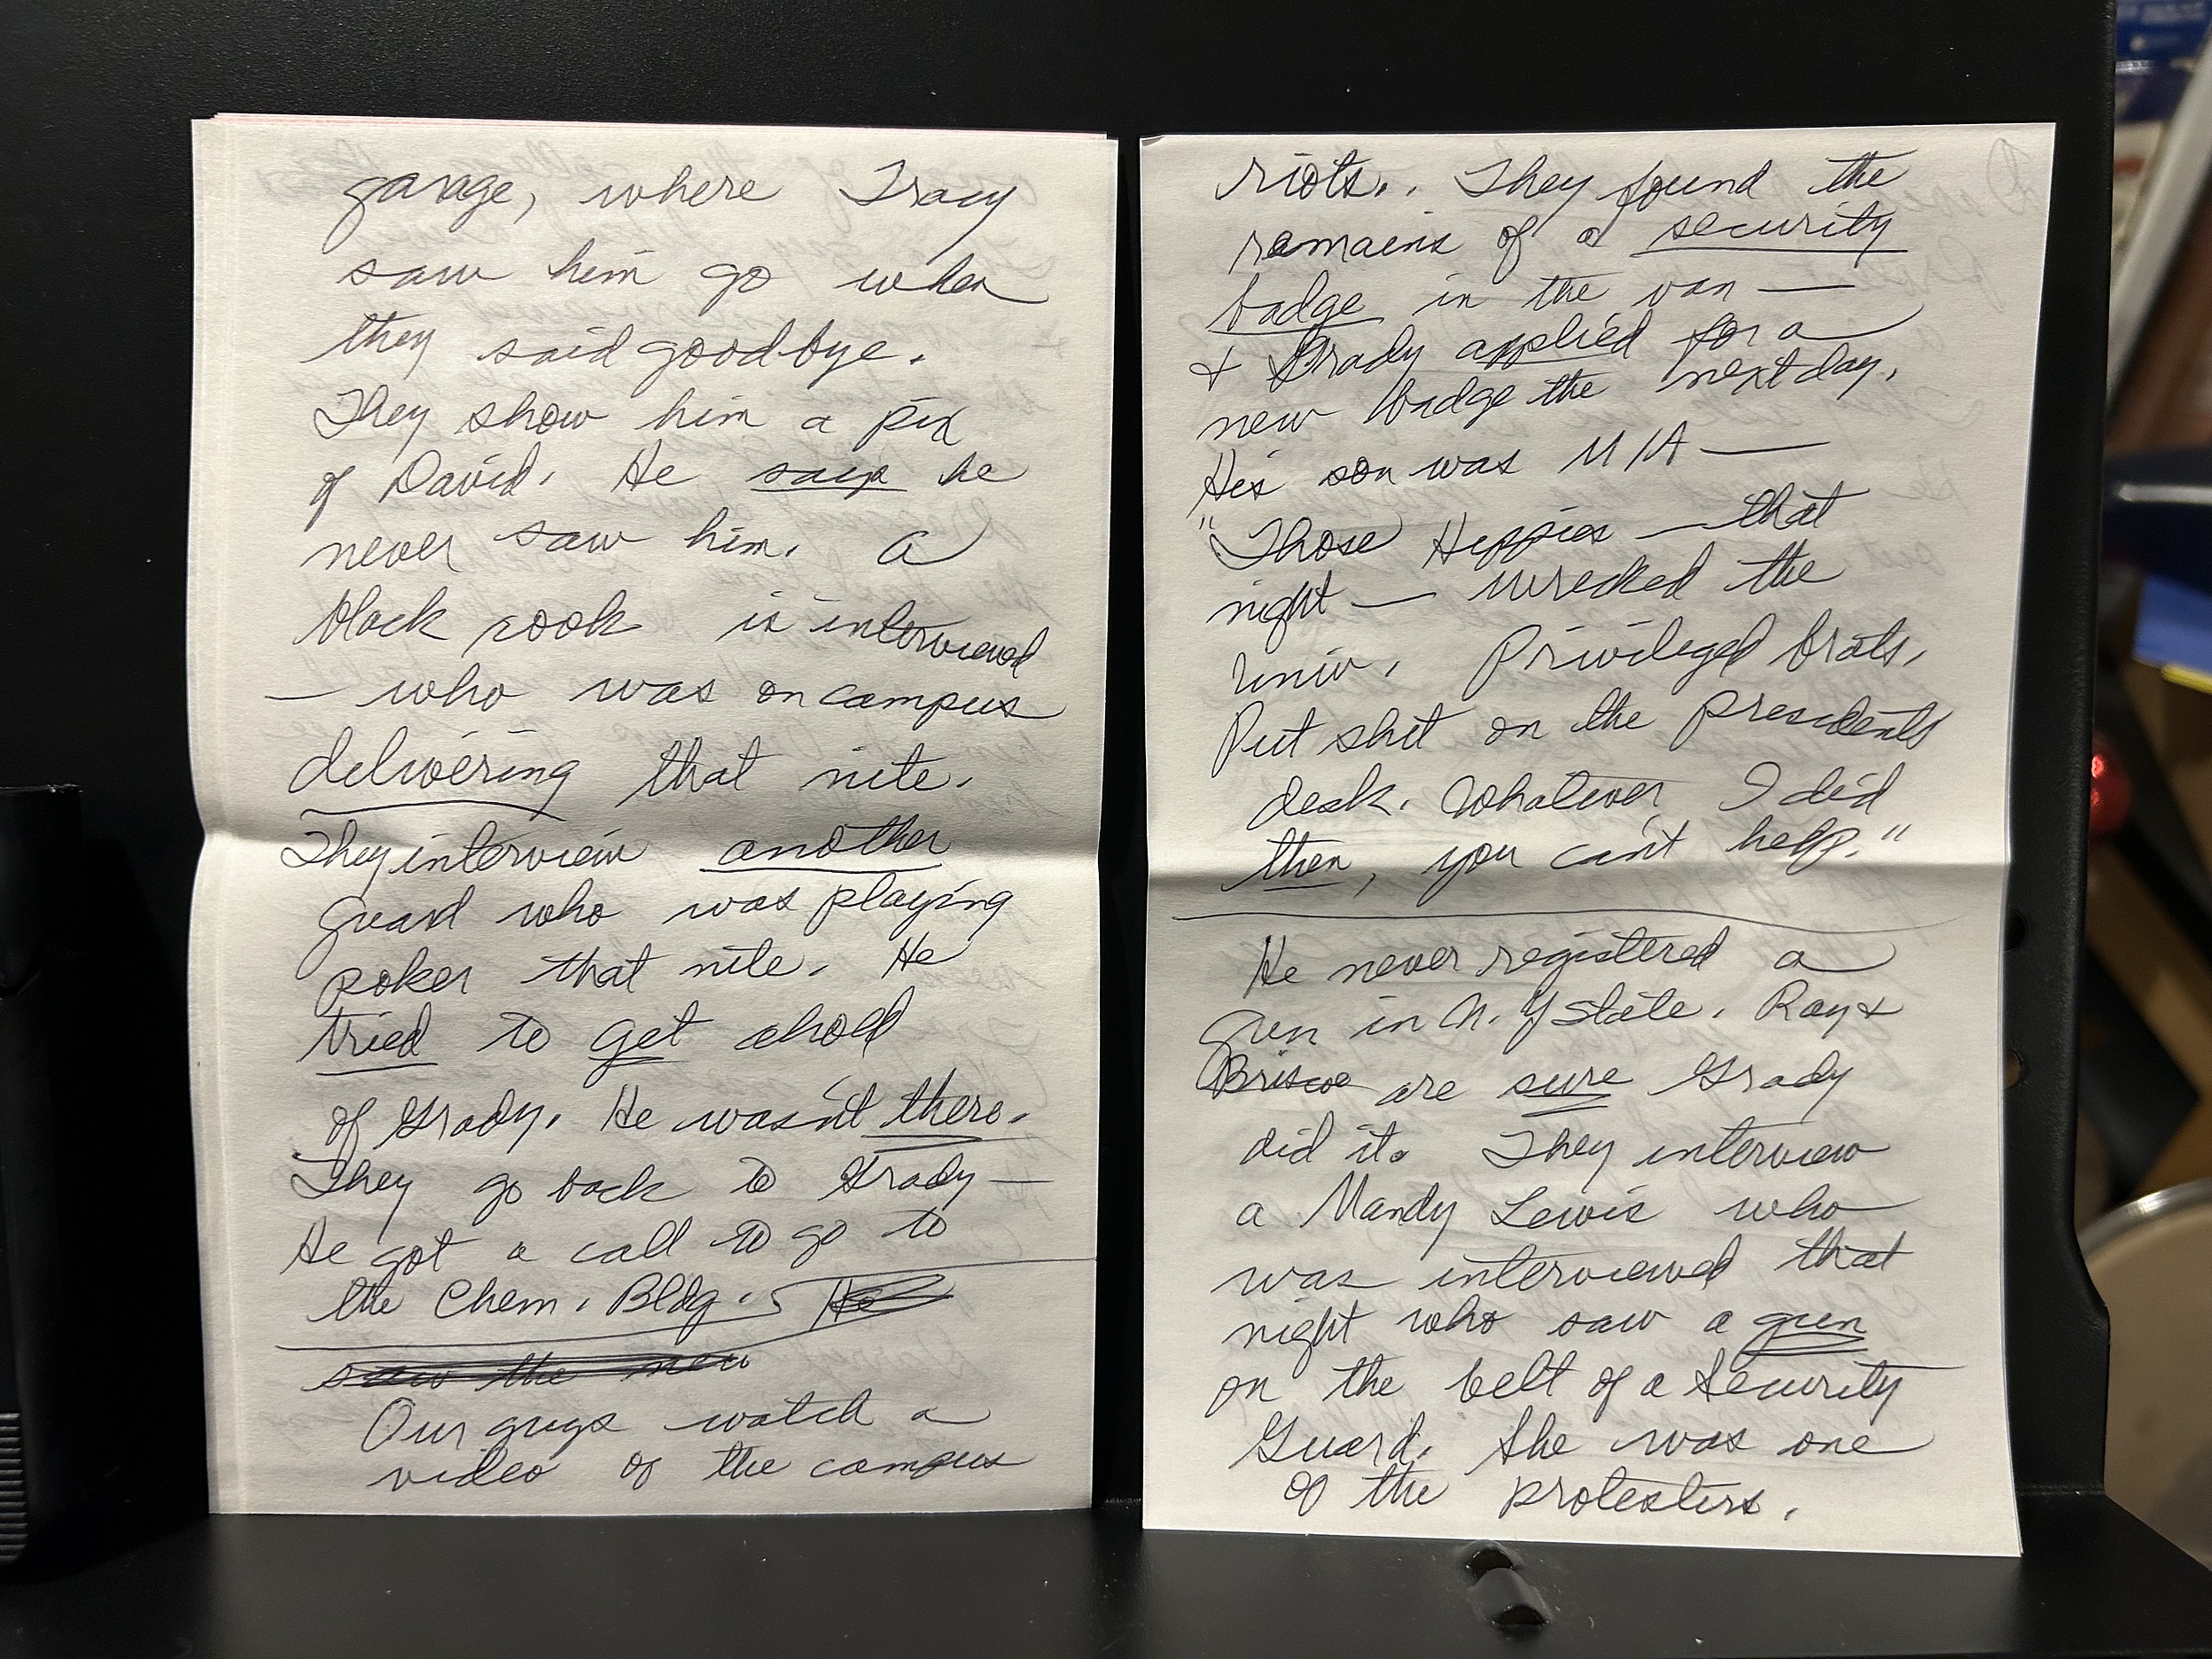 garage, where Tracy
saw him go when
they said goodbye.
They show him a pix
of David. He says he
never saw him. A
black cook is interviewed
— who was on campus
delivering that nite.
They interview another
guard who was playing
poker that nite. He
tried to get ahold
of Grady. He wasn't there.
They go back to Grady —
He got a call to go to
the Chem. Bldg. He
saw the new
Our guys watch a
video of the campus
riots. They found the
remains of a security
badge in the van —
& Grady applied for a
new badge the next day.
His son was MIA —
"Those Hippies — that
night — wrecked the
Univ. Privileged brats.
Put shit on the presidents
desk. Whatever I did
then, you can't help."
He never registered a
gun in N.Y State. Ray &
Briscoe are sure Grady
did it. They interview
a Mandy Lewis who
was interviewed that
night who saw a gun
on the belt of a Security
Guard. She was one
of the protesters.